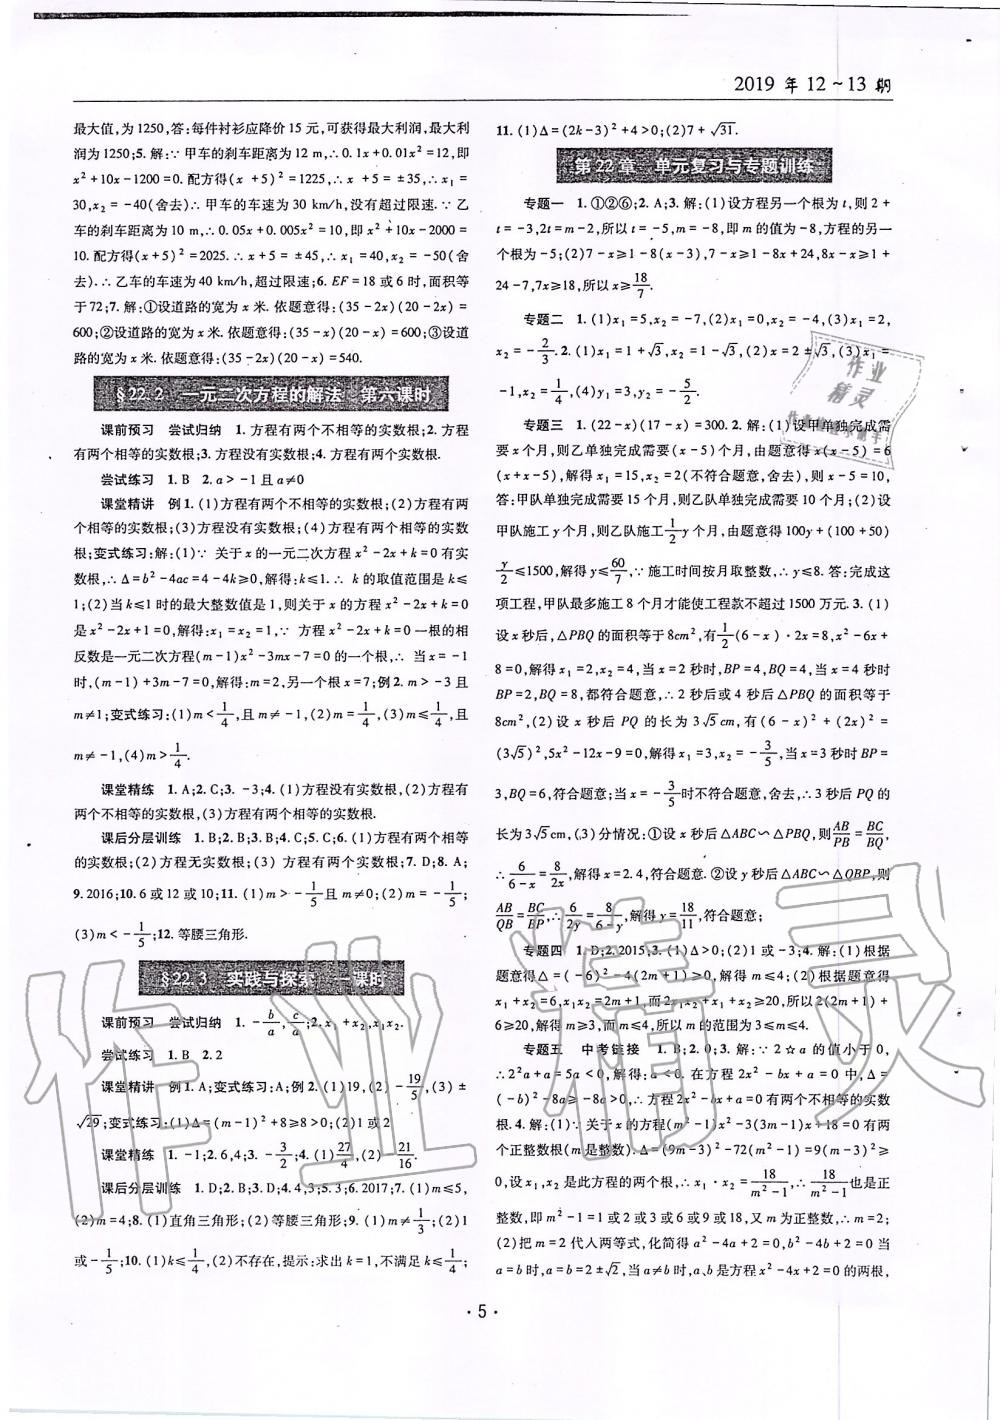 2019 年 12～13 期
最大值,为 1250,答:每件衬衫应降价 15 元,可获得最大利润,最大利
润为 1250;5. 解:∵ 甲车的刹车距离为 12 m,∴0. 1x+0. 01x²=12,即
x²+10x-1200=0. 配方得(x +5)²=1225,∴x +5 = ±35,∴x₁=
30,x₂=-40(舍去)∴甲车的车速为 30 km/h,没有超过限速. ∵乙
车的刹车距离为 10 m,∴0. 05x+0. 005x²=10,即 x²+10x-2000=
10. 配方得(x+5)²=2025. ∴x+5=±45,∴x₁=40,x₂=-50(舍
去). ∴乙车的车速为 40 km/h,超过限速;6. EF=18 或 6 时,面积等
于 72;7. 解:①设道路的宽为 x 米. 依题意得:(35-2x)(20-2x)=
600;②设道路的宽为 x 米. 依题意得:(35-x)(20-x)=600;③设道
路的宽为 x 米. 依题意得:(35-2x)(20-x)=540.
§22. 2 一元二次方程的解法 第六课时
课前预习 尝试归纳 1. 方程有两个不相等的实数根;2. 方程
有两个不相等的实数根;3. 方程没有实数根;4. 方程有两个实数根.
尝试练习 1. B 2. a>-1 且 a≠0
课堂精讲 例 1. (1)方程有两个不相等的实数根;(2)方程有两
个相等的实数根;(3)方程没有实数根;(4)方程有两个相等的实数
根;变式练习:解:(1)∵ 关于 x 的一元二次方程 x²-2x+k=0 有实
数根,∴Δ=b²-4ac=4-4k≥0,解得:k≤1. ∴ k 的取值范围是 k≤
1;(2)当 k≤1 时的最大整数值是 1,则关于 x 的方程 x²-2x+k=0
是 x²-2x+1=0,解得:x₁=x₂=1,∵ 方程 x²-2x+k=0 一根的相
反数是一元二次方程(m-1)x²-3mx-7=0 的一个根,∴ 当 x=-1
时,(m-1)+3m-7=0,解得:m=2,另一个根 x=7;例 2. m>-3 且
m≠1;变式练习:(1)m<1/4,且 m≠-1,(2)m=1/4,(3)m≤1/4,且
m≠-1,(4)m>1/4.
课堂精练 1. A;2. C;3. -3;4. (1)方程没有实数根,(2)方程有
两个不相等的实数根,(3)方程有两个相等的实数根.
课后分层训练 1. B;2. B;3. B;4. C;5. C;6. (1)方程有两个相等
的实数根;(2)方程无实数根;(3) 方程有两个实数根;7. D;8. A;
9. 2016;10. 6 或 12 或 10;11. (1)m>-1/5且 m≠0;(2)m=-1/5;
(3)m<-1/5;12. 等腰三角形.
§22. 3 实践与探索 一课时
课前预习 尝试归纳 1. -b/a,c/a;2. x₁+x₂,x₁x₂.
尝试练习 1. B 2. 2
课堂精讲 例 1. A;变式练习:A;例 2. (1)19,(2)-19/5,(3)±
√29;变式练习:(1)Δ=(m-1)²+8≥8>0;(2)1 或 2
课堂精练 1. -1;2. 6,4;3. -3/2;4. (1)27/4,(2)-21/16.
课后分层训练 1. D;2. B;3. D;4. 4,3;5. 3;6. 2017;7. (1)m≤5,
(2)m=4;8. (1)直角三角形;(2)等腰三角形;9. (1)m≠1/3;(2)1
或-1/5;10. (1)k≤1/4,(2)不存在,提示:求出 k=1,不满足 k≤1/4;
11. (1)Δ=(2k-3)²+4>0;(2)7+√31.
第 22 章 单元复习与专题训练
专题一 1. ①②⑥;2. A;3. 解:(1)设方程另一个根为 t,则 2+
t=-3,2t=m-2,所以 t=-5,m=-8,即 m 的值为-8,方程的另一
个根为-5;(2)7-x≥1-8(x-3),7-x≥1-8x+24,8x-x≥1+
24-7,7x≥18,所以 x≥18/7.
专题二 1. (1)x₁=5,x₂=-7,(2)x₁=0,x₂=-4,(3)x₁=2,
x₂=-2/3. 2. (1)x₁=1+√3,x₂=1-√3,(2)x=2±√3,(3)x₁=
-1,x₂=1/4,(4)y₁=3,y₂=-5/2.
专题三 1. (22-x)(17-x)=300. 2. 解:(1)设甲单独完成需
要 x 个月,则乙单独完成需要(x-5)个月,由题意得 x(x-5)=6
(x+x-5),解得 x₁=15,x₂=2(不符合题意,舍去),则 x-5=10,
答:甲队单独完成需要 15 个月,则乙队单独完成需要 10 个月;(2)设
甲队施工 y 个月,则乙队施工1/2y 个月,由题意得 100y+(100+50)
y/2≤1500,解得 y≤60/7,∵ 施工时间按月取整数,∴y≤8. 答:完成这
项工程,甲队最多施工 8 个月才能使工程款不超过 1500 万元. 3. (1)
设 x 秒后,△PBQ 的面积等于 8cm²,有1/2(6-x)·2x=8,x²-6x+
8=0,解得 x₁=2,x₂=4,当 x=2 秒时,BP=4,BQ=4,当 x=4 秒时
BP=2,BQ=8,都符合题意,∴2 秒后或 4 秒后△PBQ 的面积等于
8cm²,(2)设 x 秒后 PQ 的长为 3√5cm,有(6-x)²+(2x)²=
(3√5)²,5x²-12x-9=0,解得 x₁=3,x₂=-3/5,当 x=3 秒时 BP=
3,BQ=6,符合题意;当 x=-3/5时不符合题意,舍去,∴3 秒后 PQ 的
长为 3√5cm,(3)分情况:①设 x 秒后△ABC∽△PBQ,则AB/PB=BC/BQ,
∴6/(6-x)=8/2x,解得 x=2. 4,符合题意. ②设 y 秒后△ABC∽△QBP,则
AB/QB=BC/BP,∴6/2y=8/(6-y),解得 y=18/11,符合题意;
专题四 1. D;2. 2015;3. (1)Δ>0;(2)1 或-3;4. 解:(1)根据
题意得Δ=(-6)²-4(2m+1)≥0,解得 m≤4;(2)根据题意得
x₁+x₂=6,x₁x₂=2m+1,而 2x₁x₂+x₁+x₂≥20,所以 2(2m+1)+
6≥20,解得 m≥3,而 m≤4,所以 m 的范围为 3≤m≤4.
专题五 中考链接 1. B;2. 0;3. 解:∵2☆a 的值小于 0,
∴2²a+a=5a<0,解得:a<0. 在方程 2x²-bx+a=0 中,Δ=
(-b)²-8a≥-8a>0,∴方程 2x²-bx+a=0 有两个不相等的实数
根. 4. 解:(1)∵ 关于 x 的方程(m²-1)x²-3(3m-1)x+18=0 有两
个正整数根(m 是整数). Δ=(9m-3)²-72(m²-1)=9(m-3)²≥
0,设 x₁,x₂ 是此方程的两个根,∴x₁·x₂=18/(m²-1),∴18/(m²-1)也是正
整数,即 m²-1=1 或 2 或 3 或 6 或 9 或 18,又 m 为正整数,∴m=2;
(2)把 m=2 代入两等式,化简得 a²-4a+2=0,b²-4b+2=0 当
a=b 时,a=b=2±√2,当 a≠b 时,a、b 是方程 x²-4x+2=0 的两根,
· 5 ·
作业精灵
作业
精灵